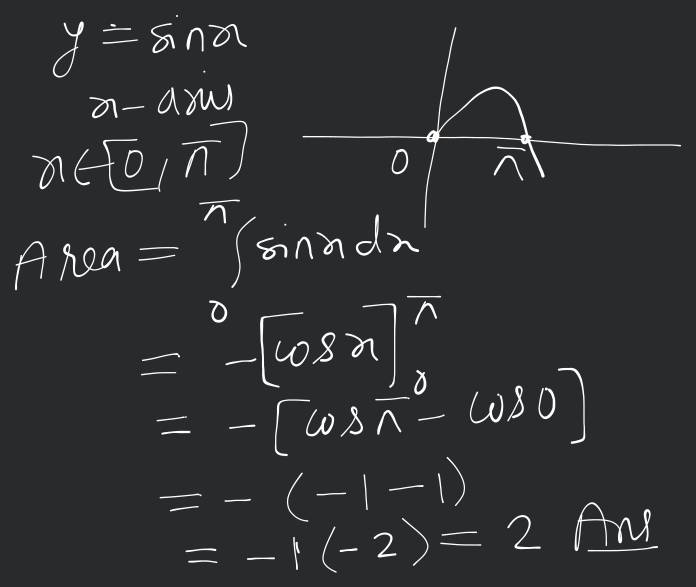 y = sinx
x-axis
x∈[0, π]
0 π
Area = ∫₀^π sinx dx
= -[cosx]₀^π
= -[cosπ - cos0]
= -(-1-1)
= -1(-2) = 2 Ans